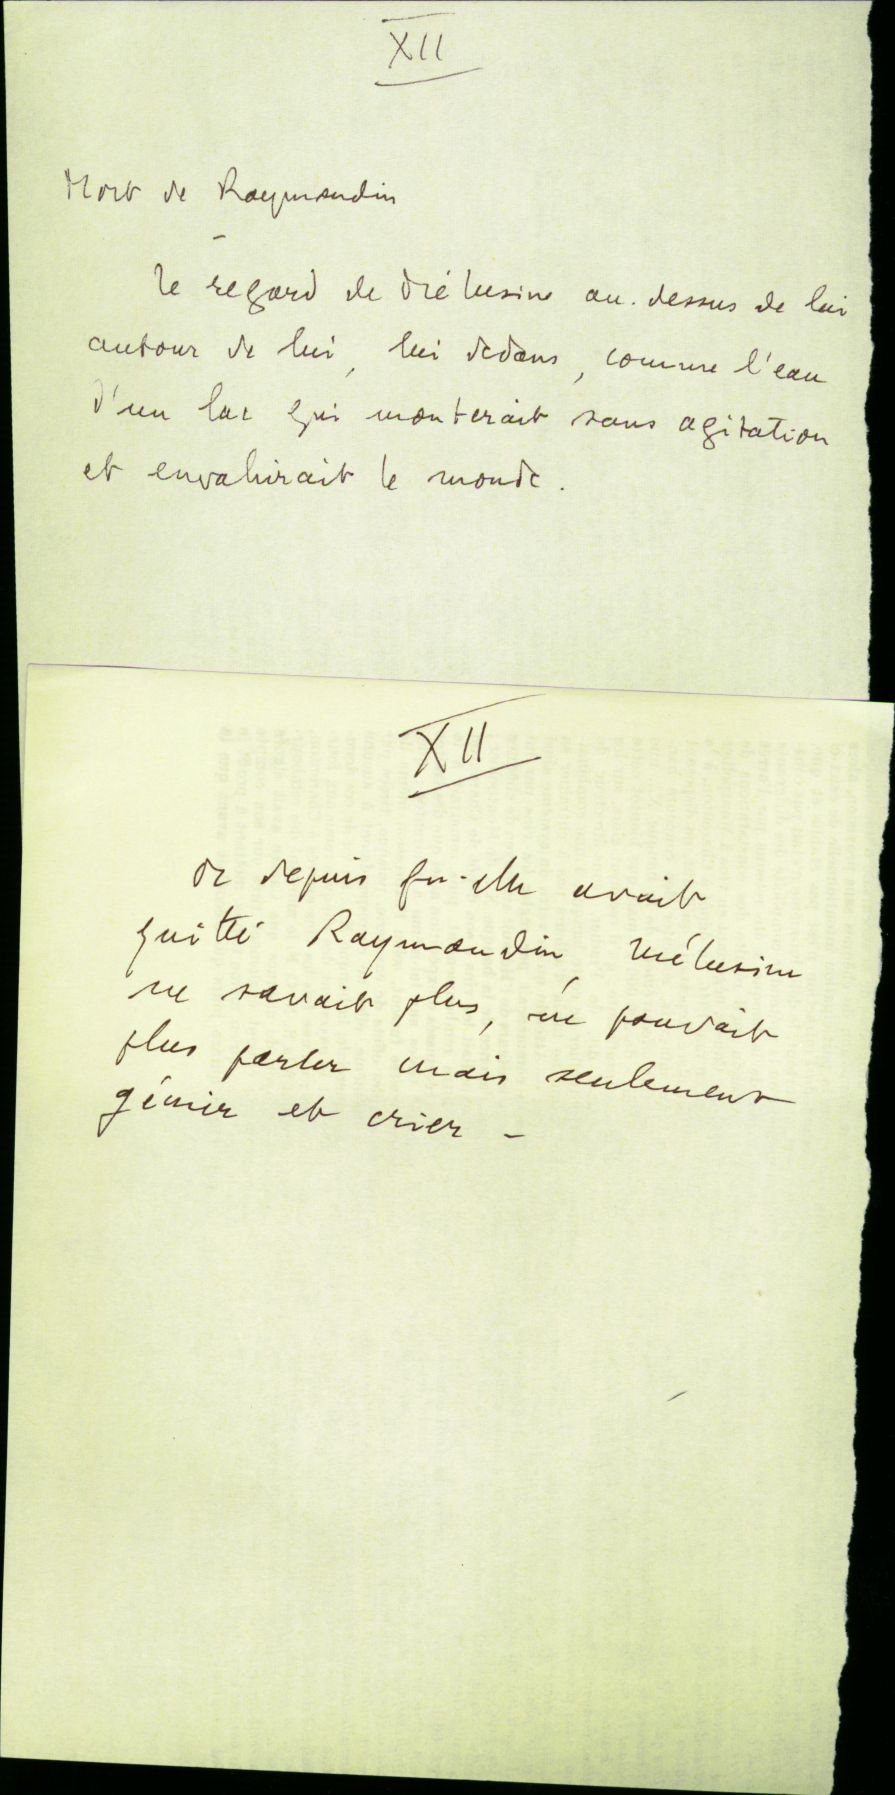 XII
Mort de Raymondin
Le regard de Mélusine au-dessus de lui
autour de lui, lui dedans, comme l'eau
d'un lac qui monterait sans agitation
et envahirait le monde.
XII
Or depuis qu'elle avait
quitté Raymondin, Mélusine
ne savait plus, ne pouvait
plus parler mais seulement
gémir et crier -